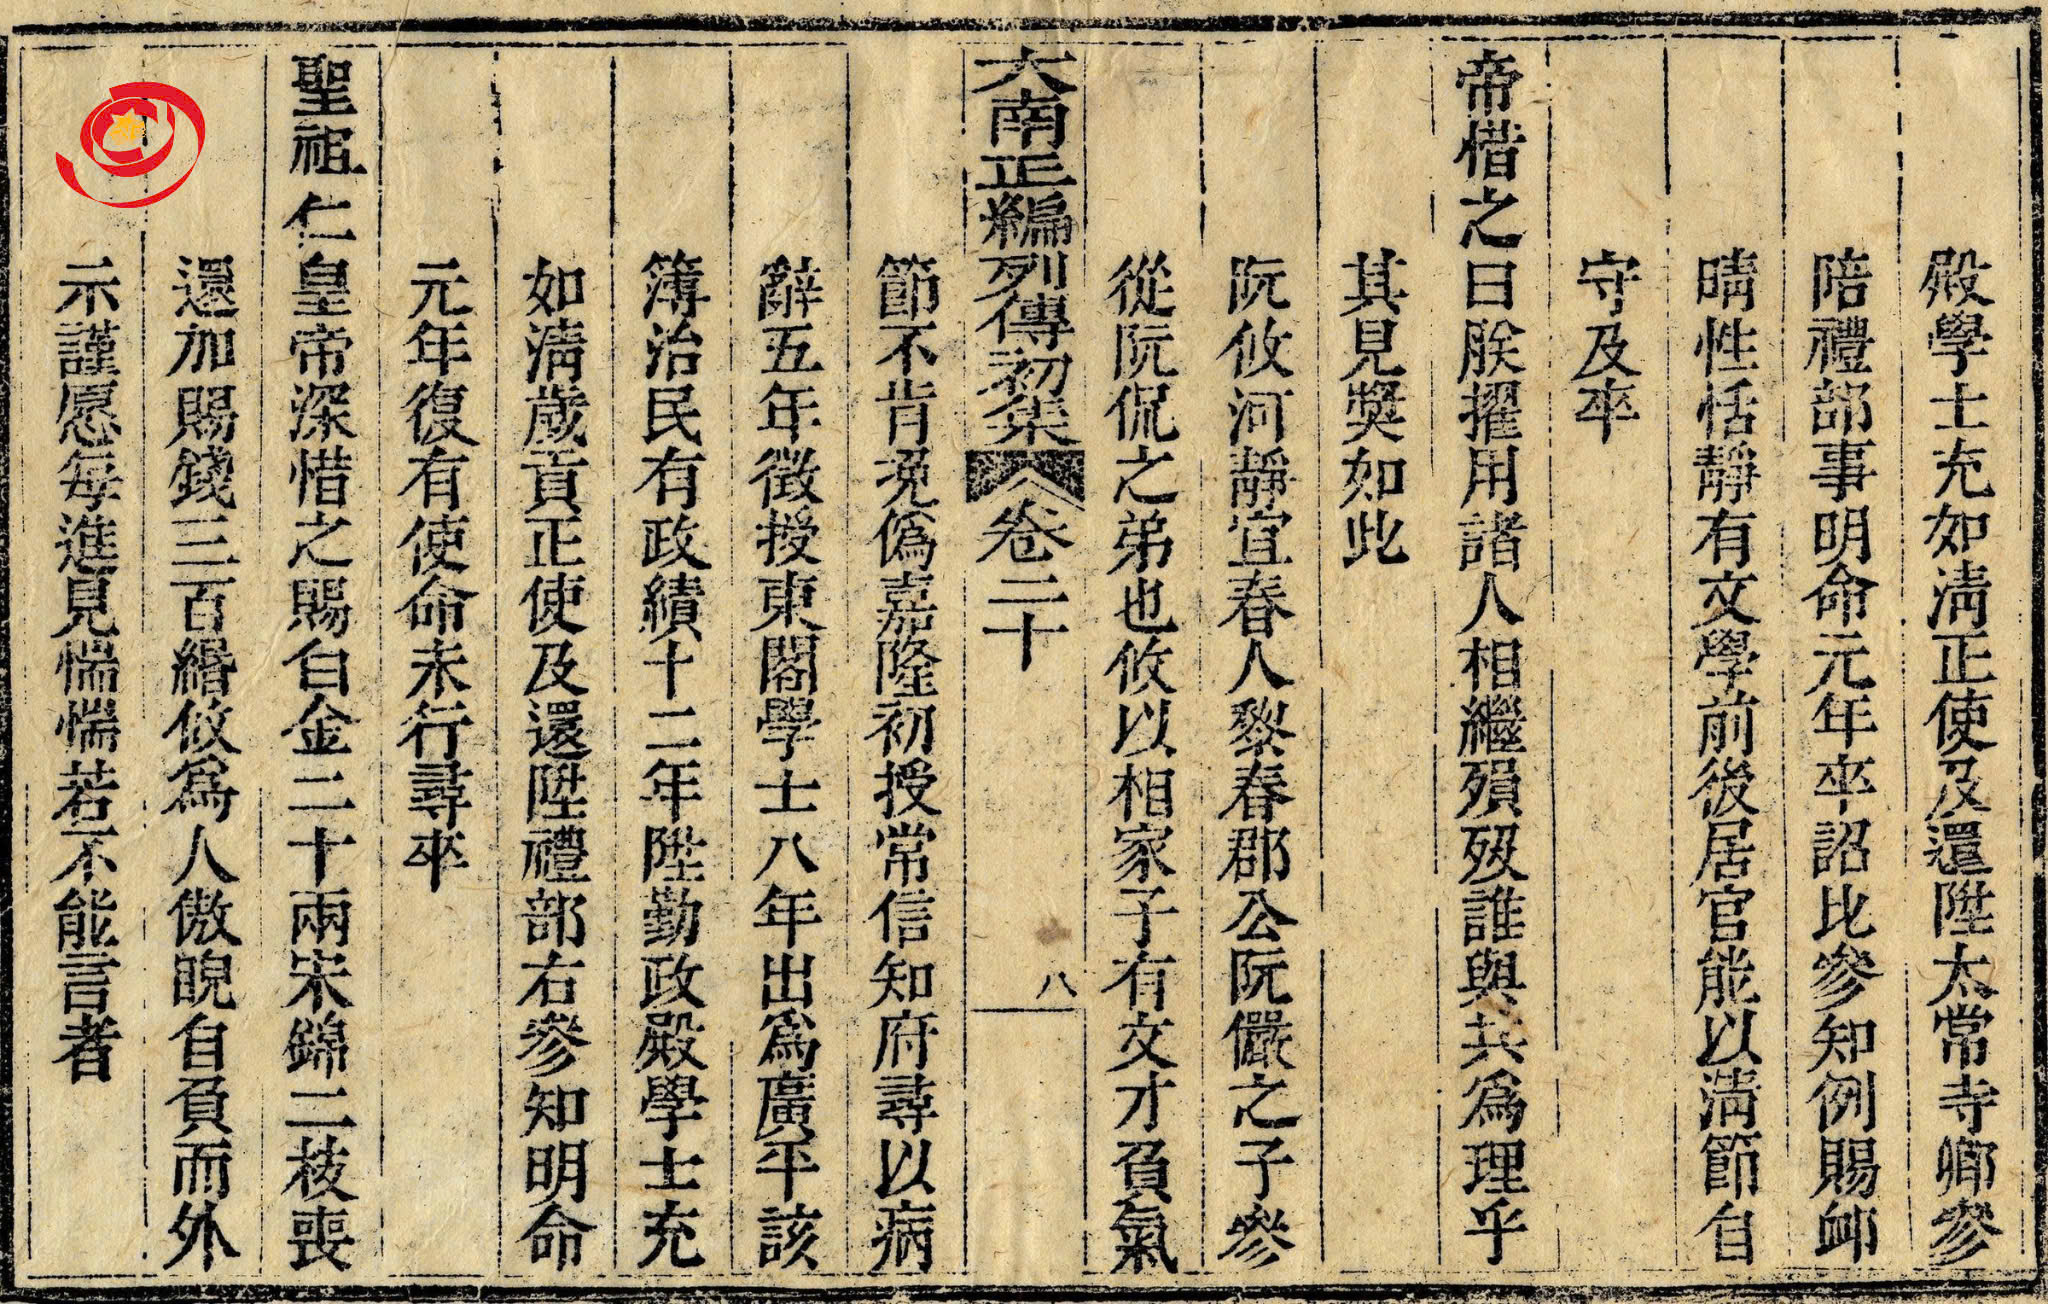 殿學士充如淸正使及還陞太常寺卿參
陪禮部事明命元年卒詔比參知例賜卹
晴性恬靜有文學前後居官能以淸節自
守及卒
帝惜之曰朕擢用諸人相繼殞歿誰與共爲理乎
其見獎如此
阮攸河靜宜春人黎春郡公阮儼之子參
從阮侃之弟也攸以相家子有文才負氣
大南正編列傳初集 卷二十 八
節不肯浼僞嘉隆初授常信知府尋以病
辭五年徵授東閣學士八年出爲廣平該
簿治民有政績十二年陞勤政殿學士充
如淸歲貢正使及還陞禮部右參知明命
元年復有使命未行尋卒
聖祖仁皇帝深惜之賜白金二十兩宋錦二枝喪
還加賜錢三百緡攸爲人傲睨自負而外
示謹愿每進見惴惴若不能言者